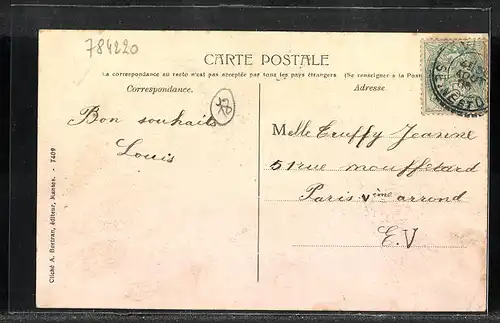 784220
CARTE POSTALE
La correspondance au recto n'est pas acceptée par tous les pays étrangers (Se renseigner à la Poste
Correspondance.
Adresse
Bon souhaits
Louis
Melle Truffy Jeanne
51 rue mouffetard
Paris Vième arrond
E.V
Cliché A. Bertran, éditeur, Nantes. - 7409